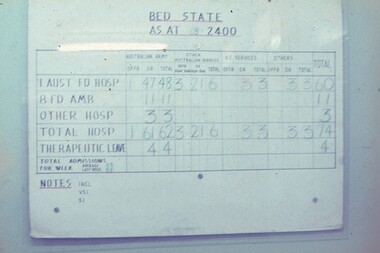 BED STATE
AS AT 2400
AUSTRALIAN ARMY OTHER AUSTRALIAN SERVICES NZ SERVICES OTHERS TOTAL
OFFR OR TOTAL OFFR OR TOTAL OFFR OR TOTAL
1 AUST FD HOSP 1 47 48 3 21 6 3 3 3 3 60
8 FD AMB 11 11 11
OTHER HOSP 3 3 3
TOTAL HOSP 1 61 62 3 21 6 3 3 3 3 74
THERAPEUTIC LEAVE 4 4 4
TOTAL ADMISSIONS
FOR WEEK AVERAGE LAST WEEK
NOTES INCL
VSI
SI